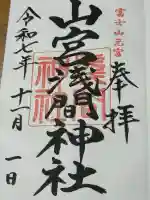 富士山元宮
奉拝
山宮浅間神社
令和七年十一月一日